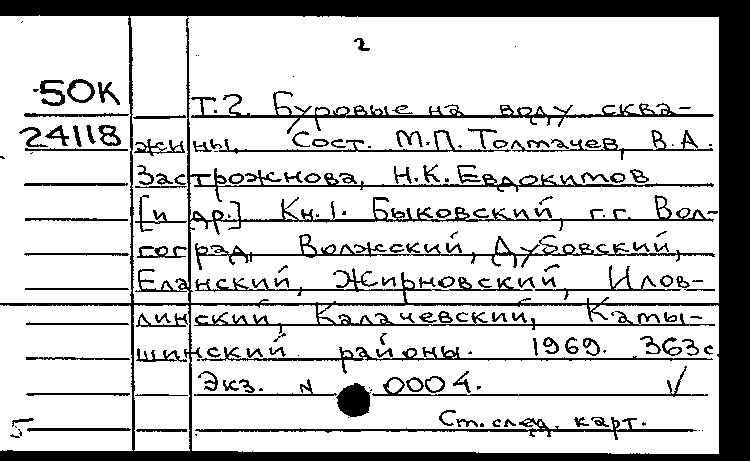 2
50К Т.2. Буровые на воду сква-
24118 жины. Сост. М.П. Толмачев, В.А.
Застрожнова, Н.К. Евдокимов
[и др.] Кн.1. Быковский, г.г. Вол-
гоград, Волжский, Дубовский,
Еланский, Жирновский, Илов-
линский, Калачевский, Камы-
шинский районы. 1969. 363с.
Экз. N 0004. √
5 Ст. след. карт.